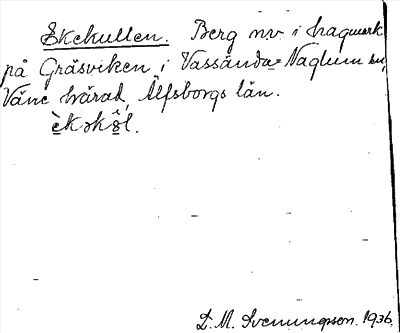 Ekekullen. Berg nv i hagmark
på Gräsviken i Vassända-Naglum sn,
Väne härad, Älfsborgs län.
èkəkôl.
L. M. Svenungsson. 1936.